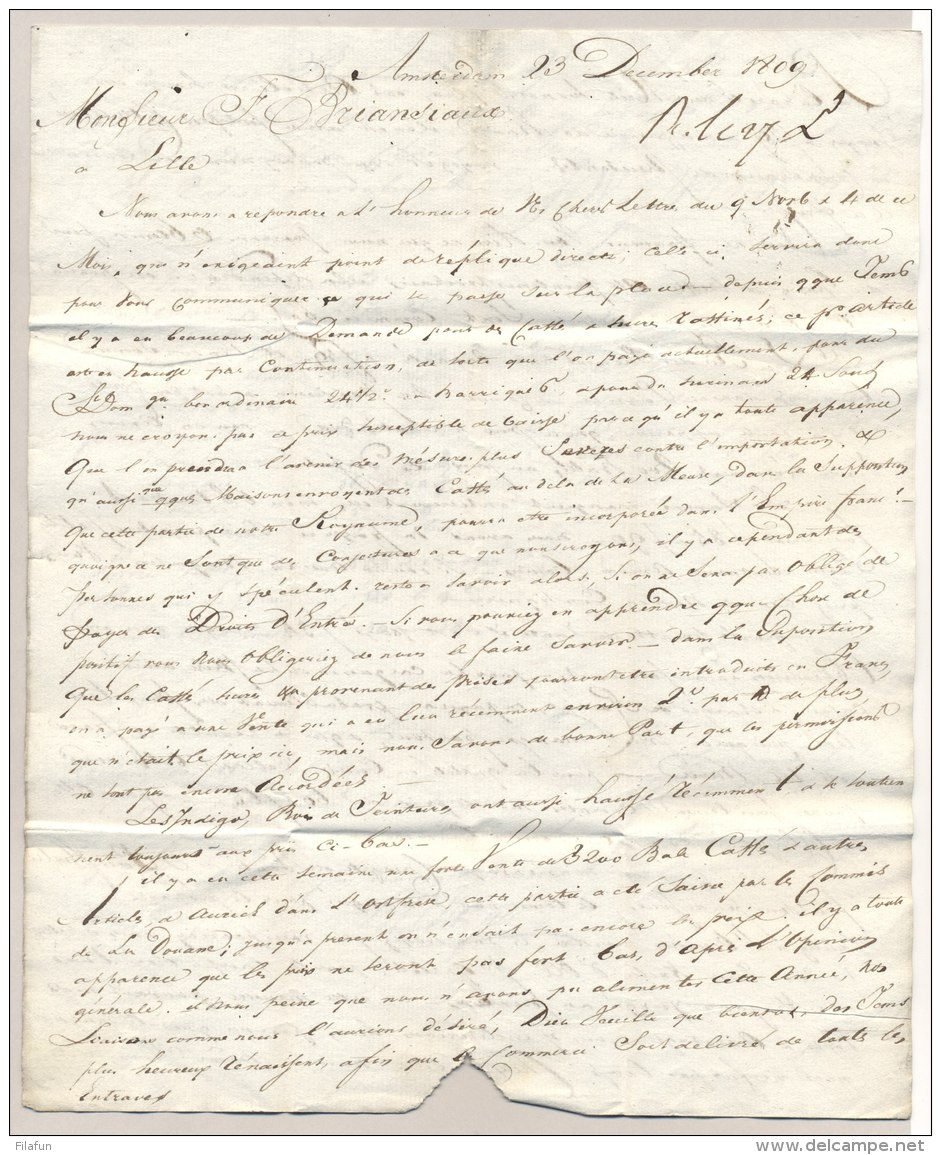 Amsterdam 23 December 1809
Monsieur F Briansiaux
a Lille
Nous avons a repondre a l' honneur de Vs Cheres Lettre du 9 Novb & 4 de ce
Mois, qui n'exigeaint point de réplique directe, Celle ci servira donc
pour Vous communiquer ce qui se passe sur la place — depuis qque Tems
il y a eu beaucoup de Demande pour des Caffé & sucres raffinés; ce pr. article
est en hausse par Continuation, de sorte que l'on paye actuellement, pour du
St Dom gu bon ordinaire 24½ a Barriques, & pour du Surinam 24 Sous
nous ne croyons pas ce prix susceptible de baisse parce qu'il y a toute apparence,
Que l'on prendra a l'avenir des mésures plus Sevères contre l'importation, &
qu'aussi qques Maisons envoyent des Caffé au dela de la Meuse, dans la Supposition
Que cette partie de notre Royaume, pourra etre incorporée dans l'Empire franc:s —
quoique ce ne Sont que des Conjectures a ce que nous croyons, il y a cependant des
personnes qui y spéculent. reste a savoir alors, Si on ne Sera pas obligé de
payer des Droits D'Entré. — Si vous pouviez en apprendre qque Chose de
positif vous nous obligeriez de nous le faire savoir — dans la Suposition
Que les Caffé sucres & provenant des prises pourront etre introduits en France
on a payé a une Vente qui a eu lieu récemment environ 2s par ℔ de plus
que n'était le prix ici, mais nous Savons de bonne Part, que ces permissions
ne sont pas encore Acordées —
Les Indigo, Bois de Teinture, ont aussi haussé récemment, & se soutien
nent toujours aux prix ci-bas. —
il y a eu cette semaine une forte Vente de 3200 Bale Caffé & autres
Articles a Aurich dans L'Ostfrise, cette partie a été Saisie par les Commis
de La Douane; jusqu'a present on n'en sait pas encore les prix. il y a toute
apparence que les prix ne seront pas fort bas, d'après l'Opinion
générale. il nous peine que nous n'avons pu alimenter cette Année, nos
Liaison comme nous l'aurions désiré, Dieu Veuille que bientot, des Tems
plus heureux rénaissent, afin que le Commerce Soit delivré de touts les
Entraves
Filafun
www.delcampe.net